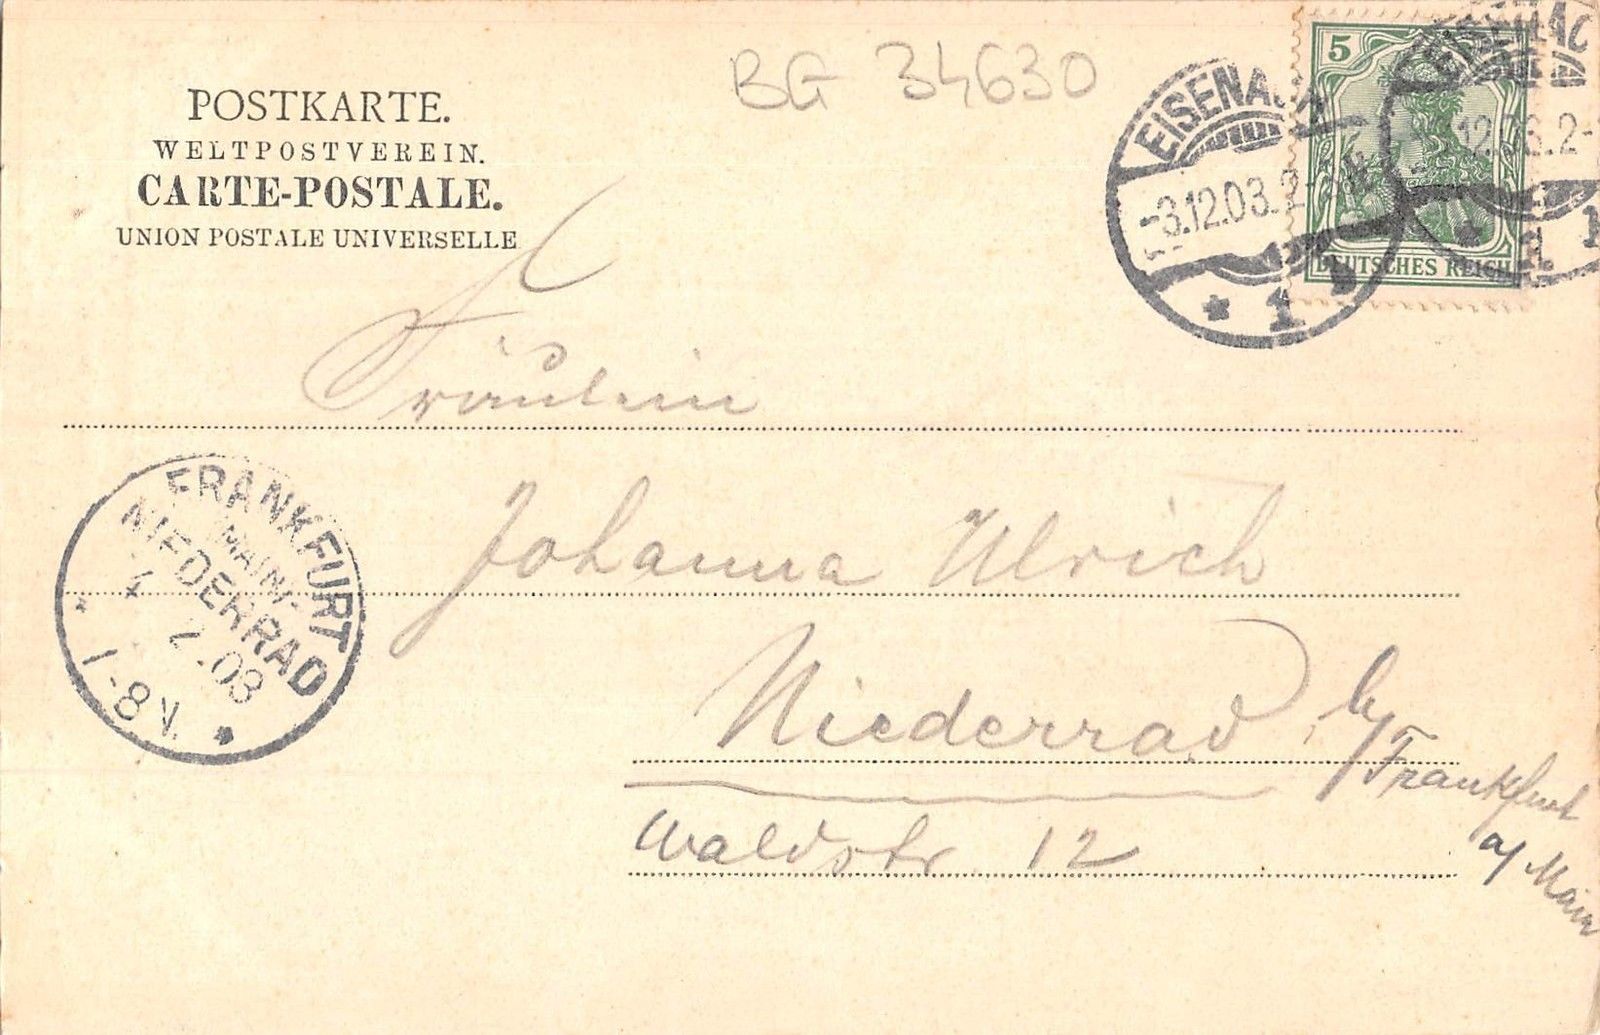 BG 34630
POSTKARTE.
WELTPOSTVEREIN.
CARTE-POSTALE.
UNION POSTALE UNIVERSELLE
EISENACH
-3.12.03.2-
* 1 b
5
DEUTSCHES REICH
EISENAC
12.03.2-
* 1
Fräulein
Johanna Ulrich
Niederrad b/
Frankfurt
a/ Main
Waldstr 12
FRANKFURT
MAIN-
NIEDERRAD
4 12.03
-8 V.